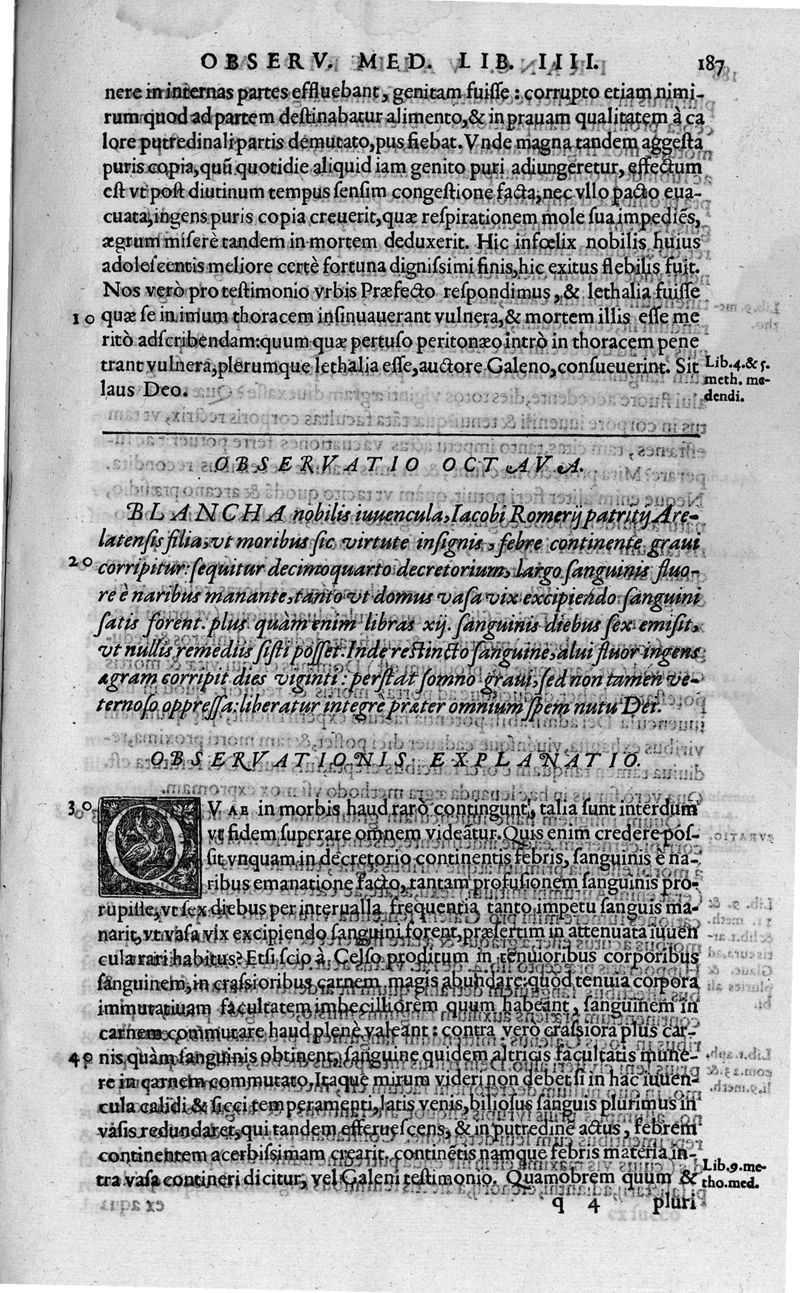 OBSERV. MED. LIB. IIII. 187
nere in internas partes effluebant, genitam fuisse: corrupto etiam nimi-
rum quod ad partem destinabatur alimento, & in prauam qualitatem à ca
lore putredinali partis demutato, pus fiebat. Vnde magna tandem aggesta
puris copia, quũ quotidie aliquid iam genito puri adiungeretur, effectum
est vt post diutinum tempus sensim congestione facta, nec vllo pacto eua-
cuata, ingens puris copia creuerit, quæ respirationem mole sua impediẽs,
ægrum miserè tandem in mortem deduxerit. Hic infœlix nobilis huius
adolescentis meliore certè fortuna dignissimi finis, hic exitus flebilis fuit.
Nos verò pro testimonio vrbis Præfecto respondimus, & lethalia fuisse
10 quæ se in imum thoracem insinuauerant vulnera, & mortem illis esse me
ritò adscribendam: quum quæ pertuso peritonæo intrò in thoracem pene
trant vulnera, plerumque lethalia esse, auctore Galeno, consueuerint. Sit
laus Deo.
Lib. 4. & 5.
meth. me-
dendi.
OBSERVATIO OCTAVA.
BLANCHA nobilis iuuencula, Iacobi Romerij patritij Are-
latensis filia, vt moribus sic virtute insignis, febre continente graui
20 corripitur: sequitur decimoquarto decretorium, largo sanguinis fluo-
re è naribus manante, tanto vt domus vasa vix excipiendo sanguini
satis forent. plus quàm enim libras xij. sanguinis diebus sex emisit,
vt nullis remediis sisti posset. Inde restincto sanguine, alui fluor ingens
ægram corripit dies viginti: perstat somno graui, sed non tamen ve-
ternoso oppressa: liberatur integrè præter omnium spem nutu Dei.
OBSERVATIONIS EXPLANATIO.
30 QVAE in morbis haud rarò contingunt, talia sunt interdum
vt fidem superare omnem videãtur. Quis enim credere pos-
sit vnquam in decretorio continentis febris, sanguinis è na-
ribus emanatione facto, tantam profusionem sanguinis pro-
rupisse, vt sex diebus per interualla frequentia tanto impetu sanguis ma-
narit, vt vasa vix excipiendo sanguini forent, præsertim in attenuata iuuen
cula rari habitus? Etsi scio à Celso proditum in tenuioribus corporibus
sanguinem, in crassioribus carnem magis abundare: quod tenuia corpora
immutatiuam facultatem imbecilliorem quum habeant, sanguinem in
carnem commutare haud plenè valeant: contra verò crassiora plus car-
40 nis quàm sanguinis obtinent, sanguine quidem altricis facultatis mune-
re in carnem commutato. Itaque mirum videri non debet si in hac iuuen-
cula calidi & sicci temperamenti, latis venis, biliosus sanguis plurimus in
vasis redundaret, qui tandem efferuescens, & in putredinẽ actus, febrem
continentem acerbissimam crearit. continẽtis namque febris materia in-
tra vasa contineri dicitur, vel Galeni testimonio. Quamobrem quum &
Lib. 9. me-
tho. med.
q 4 pluri